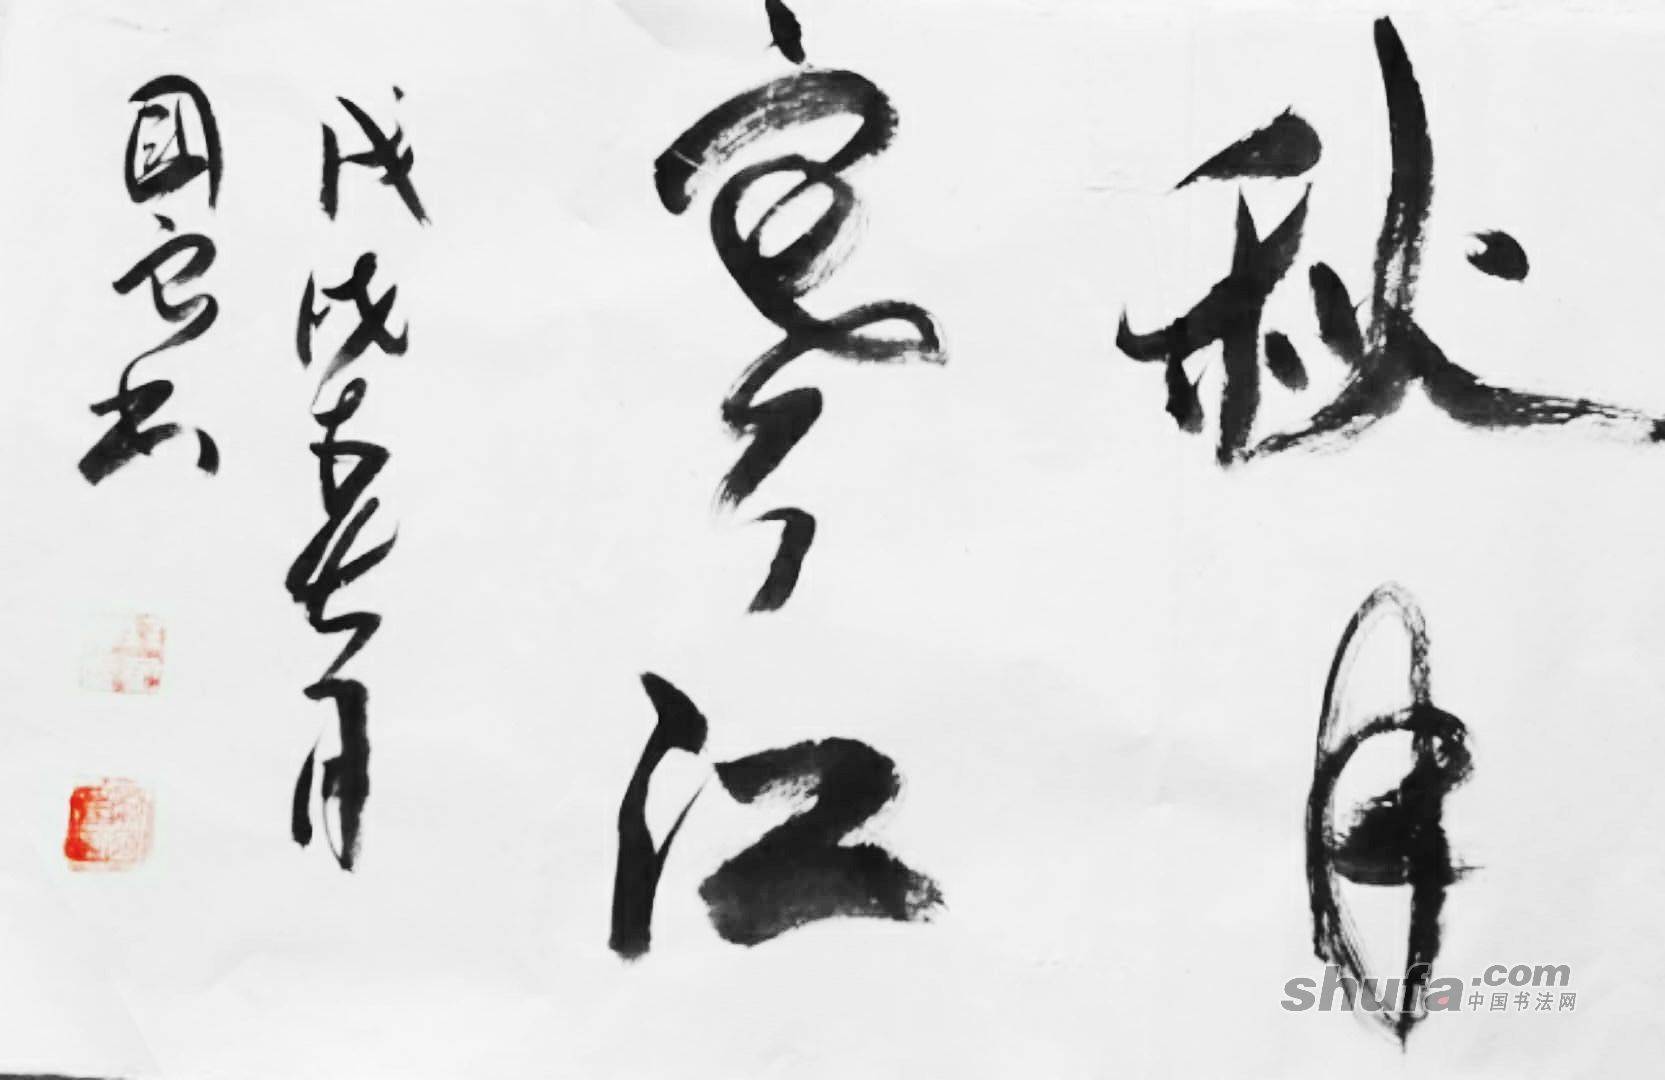 秋月
寒江
戊戌春月
国良书
shufa.com
中国书法网